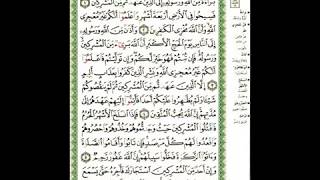 بَرَآءَةٌ مِّنَ ٱللَّهِ وَرَسُولِهِۦٓ إِلَى ٱلَّذِينَ عَٰهَدتُّم مِّنَ ٱلْمُشْرِكِينَ
فَسِيحُوا۟ فِى ٱلْأَرْضِ أَرْبَعَةَ أَشْهُرٍ وَٱعْلَمُوٓا۟ أَنَّكُمْ غَيْرُ مُعْجِزِى
ٱللَّهِ وَأَنَّ ٱللَّهَ مُخْزِى ٱلْكَٰفِرِينَ وَأَذَٰنٌ مِّنَ ٱللَّهِ وَرَسُولِهِۦٓ
إِلَى ٱلنَّاسِ يَوْمَ ٱلْحَجِّ ٱلْأَكْبَرِ أَنَّ ٱللَّهَ بَرِىٓءٌ مِّنَ ٱلْمُشْرِكِينَ
وَرَسُولُهُۥ فَإِن تُبْتُمْ فَهُوَ خَيْرٌ لَّكُمْ وَإِن تَوَلَّيْتُمْ فَٱعْلَمُوٓا۟ أَنَّكُمْ
غَيْرُ مُعْجِزِى ٱللَّهِ وَبَشِّرِ ٱلَّذِينَ كَفَرُوا۟ بِعَذَابٍ أَلِيمٍ
إِلَّا ٱلَّذِينَ عَٰهَدتُّم مِّنَ ٱلْمُشْرِكِينَ ثُمَّ لَمْ يَنقُصُوكُمْ
شَيْـًٔا وَلَمْ يُظَٰهِرُوا۟ عَلَيْكُمْ أَحَدًا فَأَتِمُّوٓا۟ إِلَيْهِمْ عَهْدَهُمْ إِلَىٰ
مُدَّتِهِمْ إِنَّ ٱللَّهَ يُحِبُّ ٱلْمُتَّقِينَ فَإِذَا ٱنسَلَخَ ٱلْأَشْهُرُ ٱلْحُرُمُ
فَٱقْتُلُوا۟ ٱلْمُشْرِكِينَ حَيْثُ وَجَدتُّمُوهُمْ وَخُذُوهُمْ وَٱحْصُرُوهُمْ
وَٱقْعُدُوا۟ لَهُمْ كُلَّ مَرْصَدٍ فَإِن تَابُوا۟ وَأَقَامُوا۟ ٱلصَّلَوٰةَ
وَءَاتَوُا۟ ٱلزَّكَوٰةَ فَخَلُّوا۟ سَبِيلَهُمْ إِنَّ ٱللَّهَ غَفُورٌ رَّحِيمٌ
وَإِنْ أَحَدٌ مِّنَ ٱلْمُشْرِكِينَ ٱسْتَجَارَكَ فَأَجِرْهُ حَتَّىٰ يَسْمَعَ